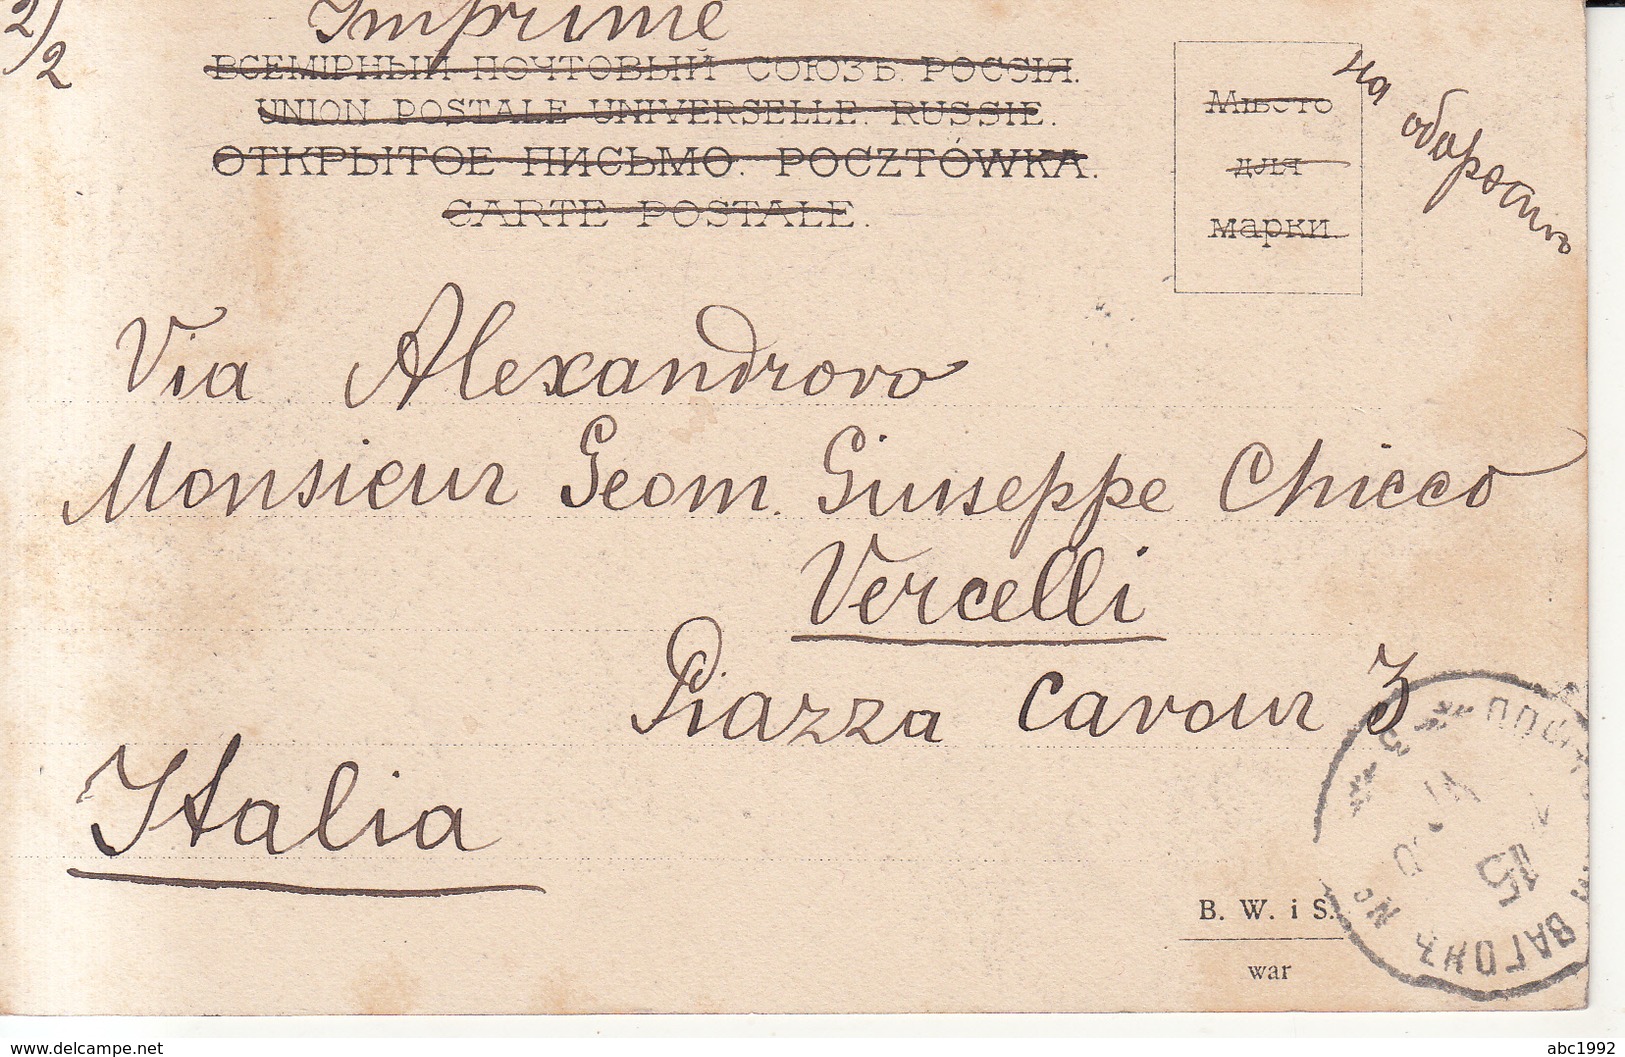 2/2
Imprimé
ВСЕМІРНЫЙ ПОЧТОВЫЙ СОЮЗЪ. РОССІЯ.
UNION POSTALE UNIVERSELLE. RUSSIE.
ОТКРЫТОЕ ПИСЬМО. POCZTÓWKA.
CARTE POSTALE.
Мѣсто
для
марки
на обороти
Via Alexandrovo
Monsieur Geom. Giuseppe Chicco
Vercelli
Piazza Cavour 3
Italia
B. W. i S.
war
ВАГОНЪ №
15
www.delcampe.net
abc1992